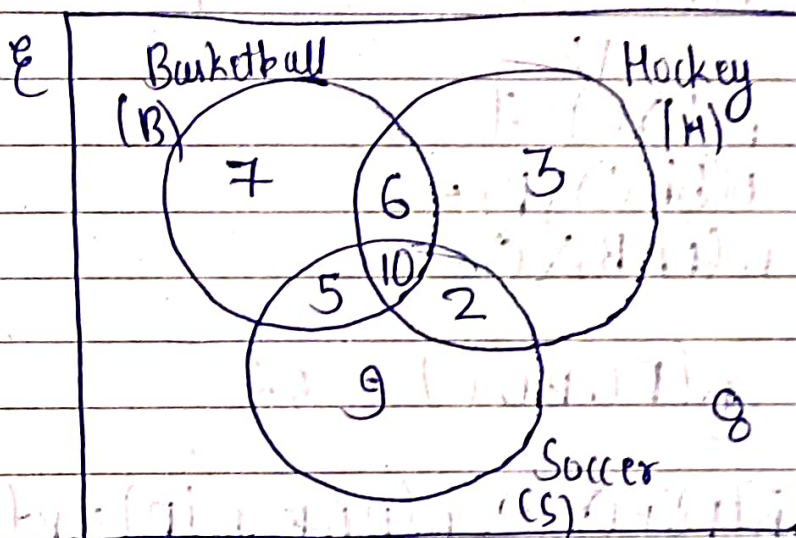 ξ
Basketball
(B)
Hockey
(H)
7
6
3
5
10
2
9
8
Soccer
(S)